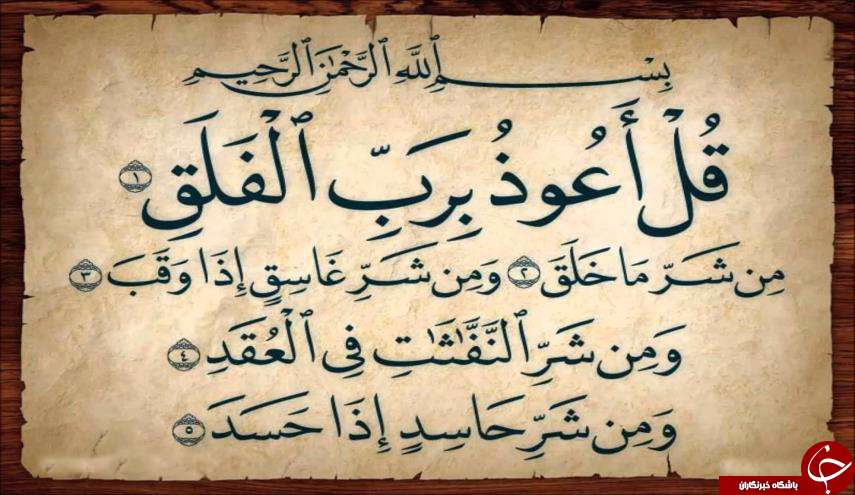 بِسْمِ ٱللَّهِ ٱلرَّحْمَٰنِ ٱلرَّحِيمِ
قُلْ أَعُوذُ بِرَبِّ ٱلْفَلَقِ ١
مِن شَرِّ مَا خَلَقَ ٢ وَمِن شَرِّ غَاسِقٍ إِذَا وَقَبَ ٣
وَمِن شَرِّ ٱلنَّفَّٰثَٰتِ فِي ٱلْعُقَدِ ٤
وَمِن شَرِّ حَاسِدٍ إِذَا حَسَدَ ٥
باشگاه خبرنگاران